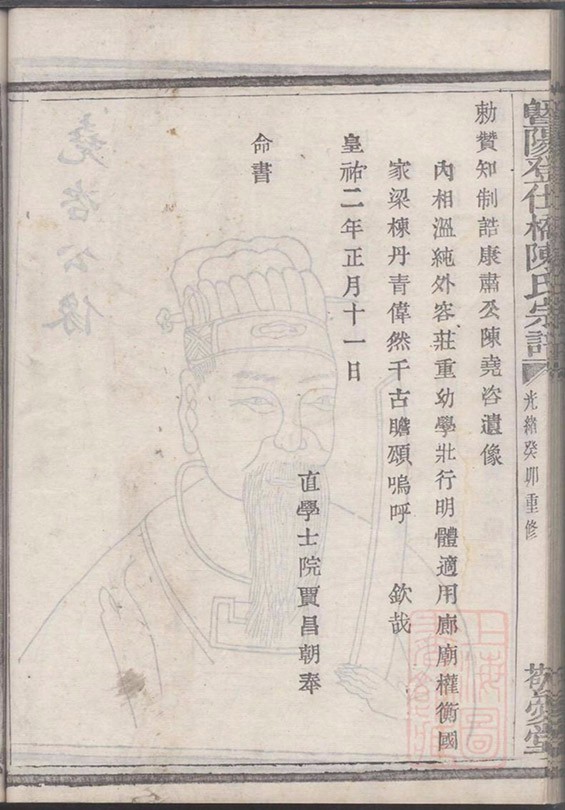 暨陽登仕橋陳氏宗譜
光緒癸卯重修
敬愛堂
勅贊知制誥康肅公陳堯咨遺像
內相溫純外容莊重幼學壯行明體適用廊廟權衡國
家梁棟丹青偉然千古瞻頌嗚呼　欽哉
皇祐二年正月十一日
直學士院賈昌朝奉
命書
堯咨公像